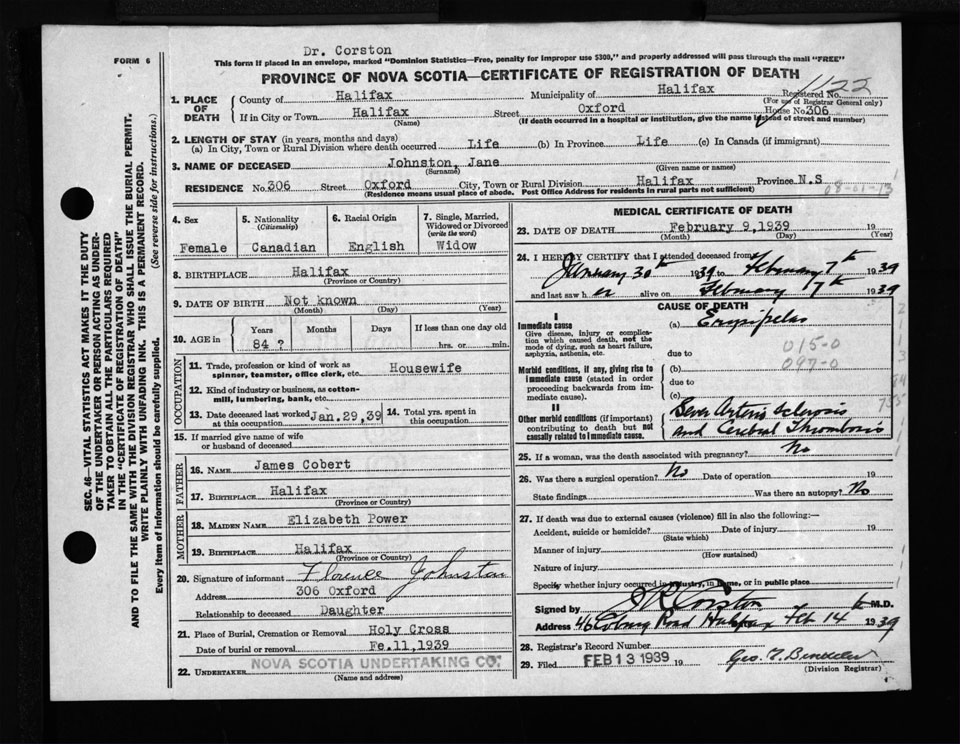 Dr. Corston
FORM 6
This form if placed in an envelope, marked "Dominion Statistics—Free, penalty for improper use $300," and properly addressed will pass through the mail "FREE"
PROVINCE OF NOVA SCOTIA—CERTIFICATE OF REGISTRATION OF DEATH
1122
Registered No.
(For use of Registrar General only)
1. PLACE OF DEATH
County of Halifax Municipality of Halifax
If in City or Town Halifax Street Oxford House No. 306
(Name) (If death occurred in a hospital or institution, give the name instead of street and number)
2. LENGTH OF STAY (in years, months and days)
(a) In City, Town or Rural Division where death occurred Life (b) In Province Life (c) In Canada (if immigrant)
3. NAME OF DECEASED Johnston, Jane
(Surname) (Given name or names)
RESIDENCE No. 306 Street Oxford City, Town or Rural Division Halifax Province N.S
(Residence means usual place of abode. Post Office Address for residents in rural parts not sufficient)
08-01-13
4. Sex
Female
5. Nationality
(Citizenship)
Canadian
6. Racial Origin
English
7. Single, Married, Widowed or Divorced
(write the word)
Widow
8. BIRTHPLACE Halifax
(Province or Country)
9. DATE OF BIRTH Not known
(Month) (Day) (Year)
10. AGE in
Years Months Days If less than one day old
84 ? hrs. or min.
OCCUPATION
11. Trade, profession or kind of work as spinner, teamster, office clerk, etc. Housewife
12. Kind of industry or business, as cotton-mill, lumbering, bank, etc.
13. Date deceased last worked at this occupation Jan. 29, 39
14. Total yrs. spent in this occupation
15. If married give name of wife or husband of deceased
FATHER
16. NAME James Cobert
17. BIRTHPLACE Halifax
(Province or Country)
MOTHER
18. MAIDEN NAME Elizabeth Power
19. BIRTHPLACE Halifax
(Province or Country)
20. Signature of informant Florence Johnston
Address 306 Oxford
Relationship to deceased Daughter
21. Place of Burial, Cremation or Removal Holy Cross
Date of burial or removal Fe.11,1939
22. UNDERTAKER NOVA SCOTIA UNDERTAKING CO.
(Name and address)
MEDICAL CERTIFICATE OF DEATH
23. DATE OF DEATH February 9,1939 19
(Month) (Day) (Year)
24. I HEREBY CERTIFY that I attended deceased from
January 30th 1939 to February 7th 1939
and last saw her alive on February 7th 1939
CAUSE OF DEATH
I
Immediate cause
Give disease, injury or complication which caused death, not the mode of dying, such as heart failure, asphyxia, asthenia, etc.
(a) Erysipelas
due to
015-0
097-0
Morbid conditions, if any, giving rise to immediate cause (stated in order proceeding backwards from immediate cause).
(b)
due to
(c)
II
Other morbid conditions (if important) contributing to death but not causally related to immediate cause.
Arterio Sclerosis
and Cerebral Thrombosis
25. If a woman, was the death associated with pregnancy? No
26. Was there a surgical operation? No Date of operation 19
State findings Was there an autopsy? No
27. If death was due to external causes (violence) fill in also the following:—
Accident, suicide or homicide? Date of injury 19
(State which)
Manner of injury
(How sustained)
Nature of injury
Specify whether injury occurred in industry, in home, or in public place
Signed by Corston M.D.
Address 46 Coburg Road Halifax Feb 14 1939
28. Registrar's Record Number
29. Filed FEB 13 1939 19
(Division Registrar)
SEC. 46—VITAL STATISTICS ACT MAKES IT THE DUTY
OF THE UNDERTAKER OR PERSON ACTING AS UNDER-
TAKER TO OBTAIN ALL THE PARTICULARS REQUIRED
IN THE "CERTIFICATE OF REGISTRATION OF DEATH"
AND TO FILE THE SAME WITH THE DIVISION REGISTRAR WHO SHALL ISSUE THE BURIAL PERMIT.
WRITE PLAINLY WITH UNFADING INK. THIS IS A PERMANENT RECORD.
Every item of Information should be carefully supplied. (See reverse side for instructions.)